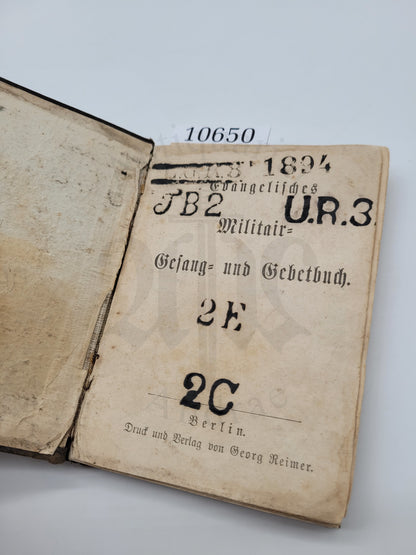 10650
1894
Evangelisches
JB2 U.R.3.
Militair-
Gesang- und Gebetbuch.
2E
2C
Berlin.
Druck und Verlag von Georg Reimer.